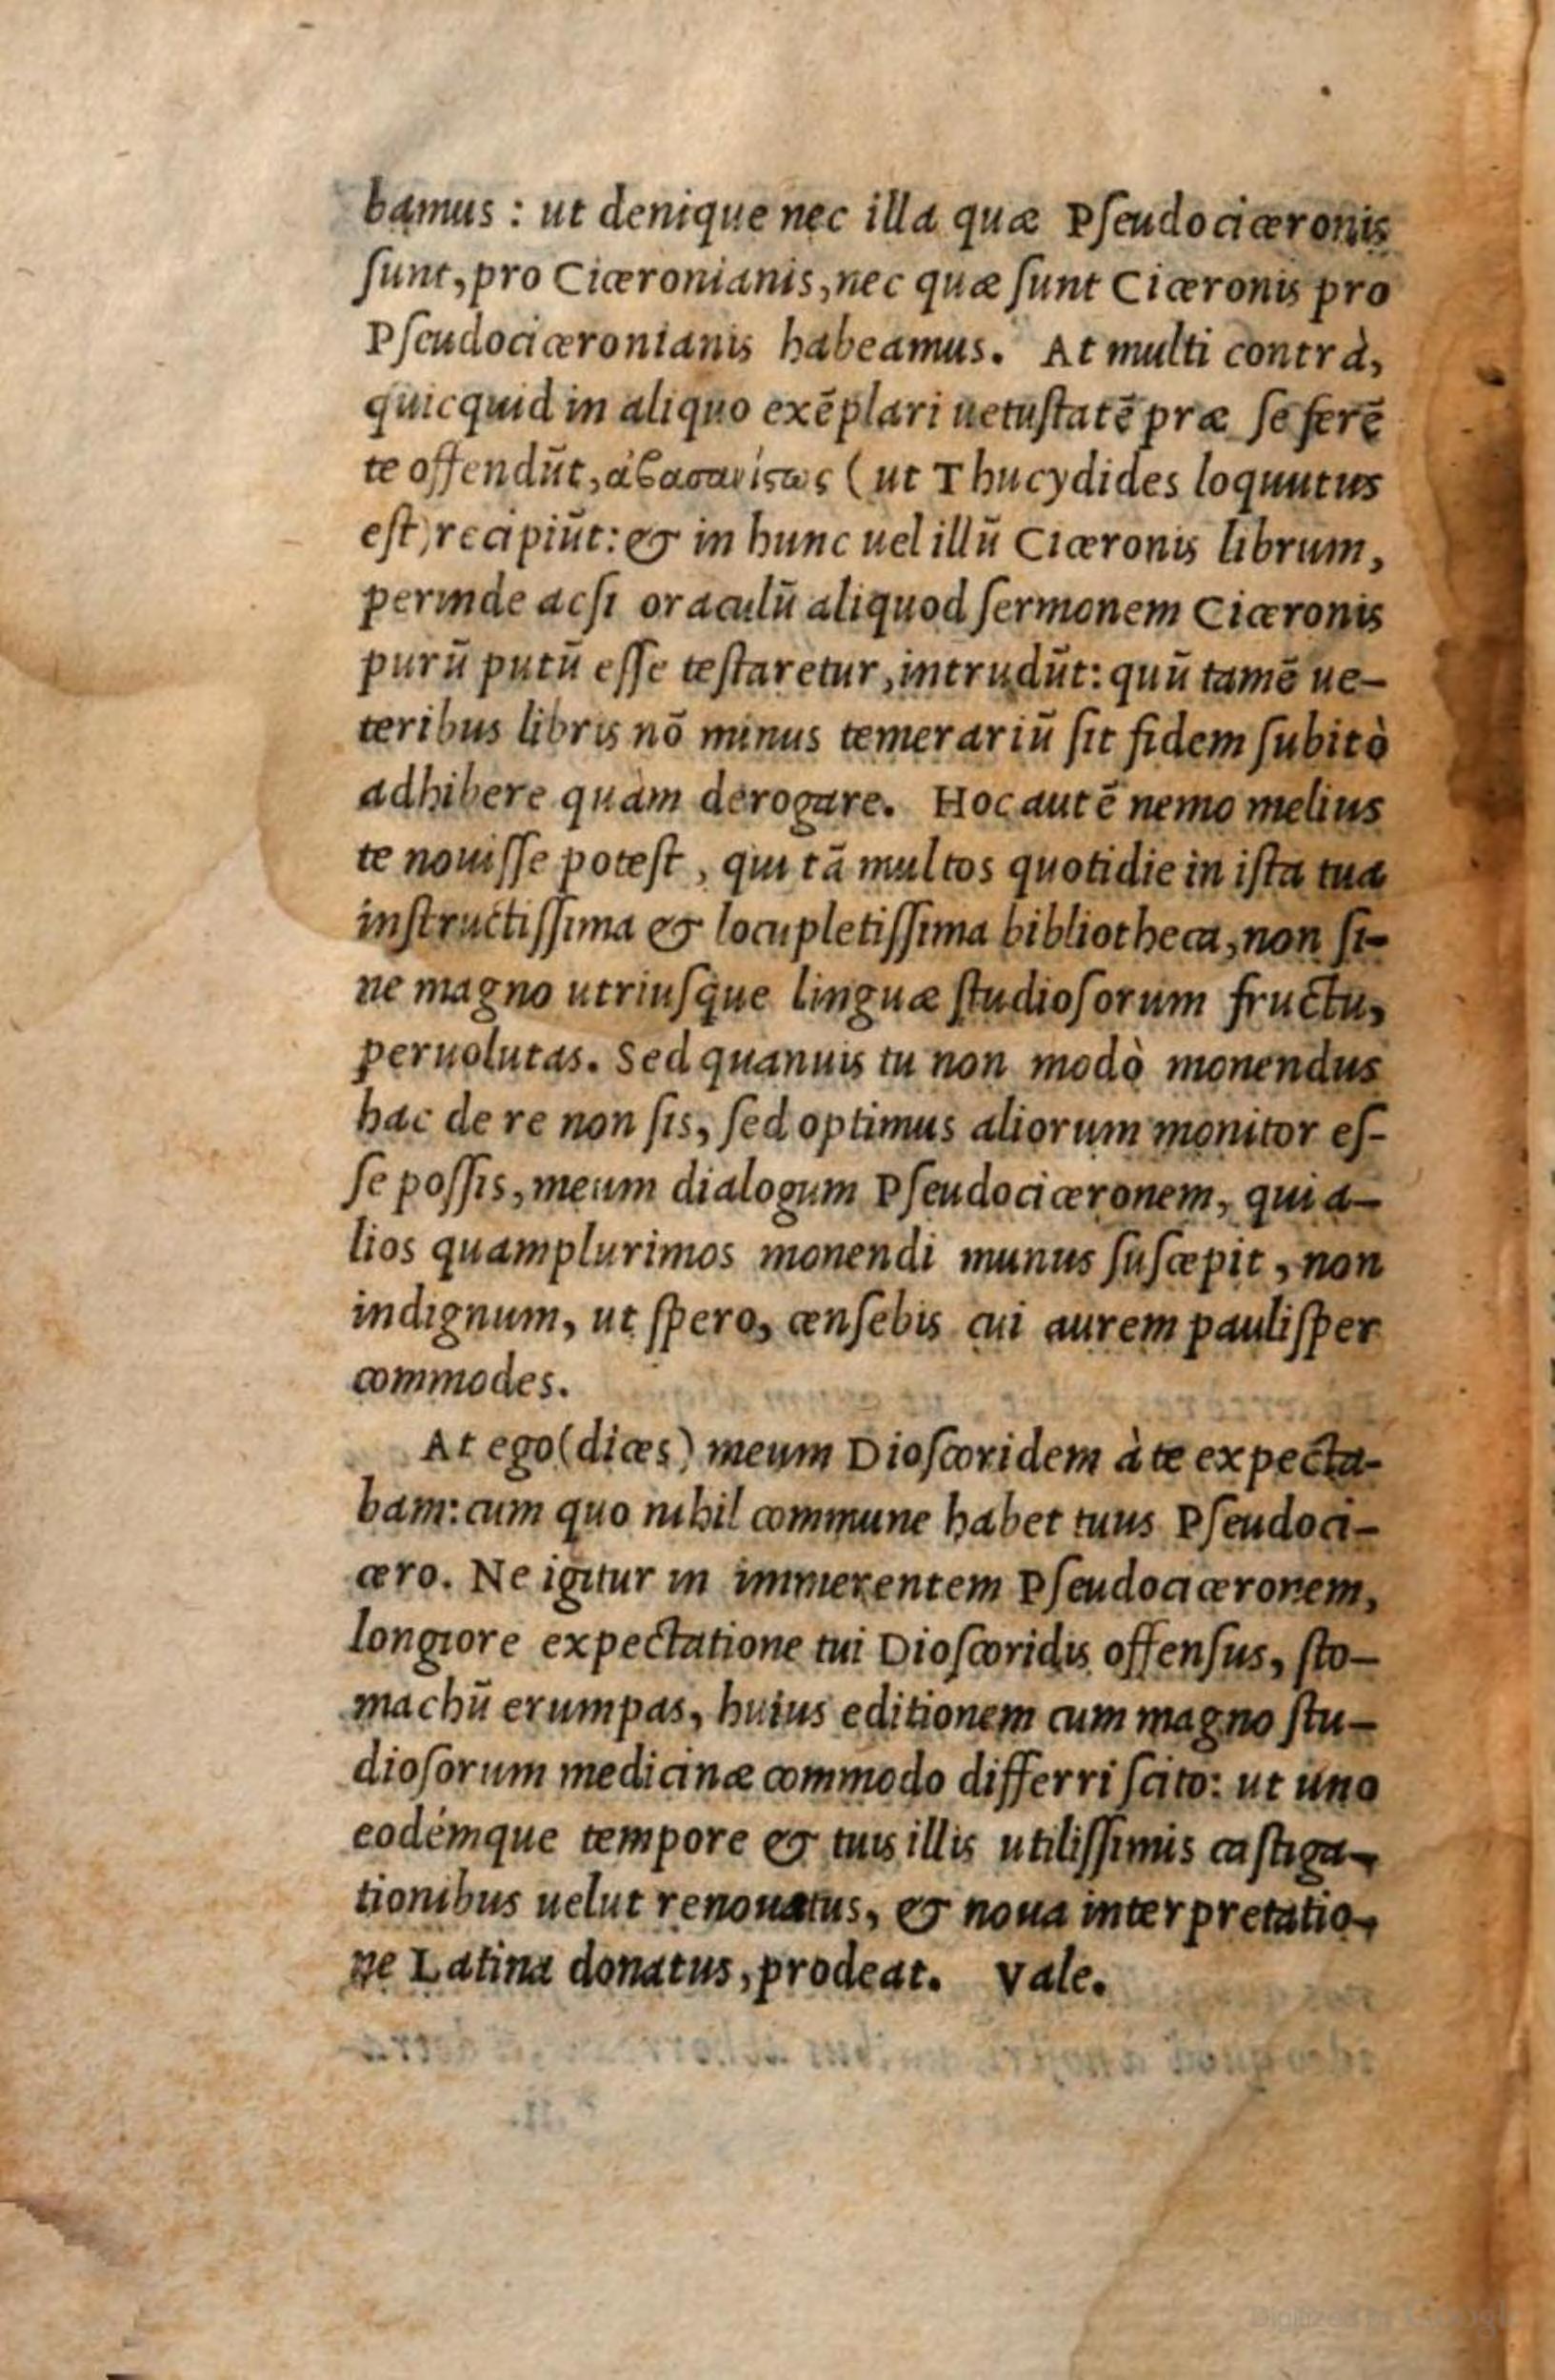 bamus : ut denique nec illa quæ Pſeudociceronis
ſunt, pro Ciceronianis, nec quæ ſunt Ciceronis pro
Pſeudociceronianis habeamus. At multi contrà,
quicquid in aliquo exẽplari uetuſtatẽ præ ſe ferẽ
te offendũt, ἀβασανίστως ( ut Thucydides loquutus
eſt) recipiũt: & in hunc uel illũ Ciceronis librum,
perinde acſi oraculũ aliquod ſermonem Ciceronis
purũ putũ eſſe teſtaretur, intrudũt: quũ tamẽ ue-
teribus libris nõ minus temerariũ ſit fidem ſubitò
adhibere quàm derogare. Hoc autẽ nemo melius
te nouiſſe poteſt, qui tã multos quotidie in iſta tua
inſtructiſſima & locupletiſſima bibliotheca, non ſi-
ne magno utriuſque linguæ ſtudioſorum fructu,
peruolutas. Sed quanuis tu non modò monendus
hac de re non ſis, ſed optimus aliorum monitor eſ-
ſe poſſis, meum dialogum Pſeudociceronem, qui a-
lios quamplurimos monendi munus ſuſcepit, non
indignum, ut ſpero, cenſebis cui aurem pauliſper
commodes.
At ego (dices) meum Dioſcoridem à te expecta-
bam: cum quo nihil commune habet tuus Pſeudoci-
cero. Ne igitur in immerentem Pſeudociceronem,
longiore expectatione tui Dioſcoridis offenſus, ſto-
machũ erumpas, huius editionem cum magno ſtu-
dioſorum medicinæ commodo differri ſcito: ut uno
eodémque tempore & tuis illis utiliſſimis caſtiga-
tionibus uelut renouatus, & noua interpretatio-
ne Latina donatus, prodeat. Vale.
Digitized by Google